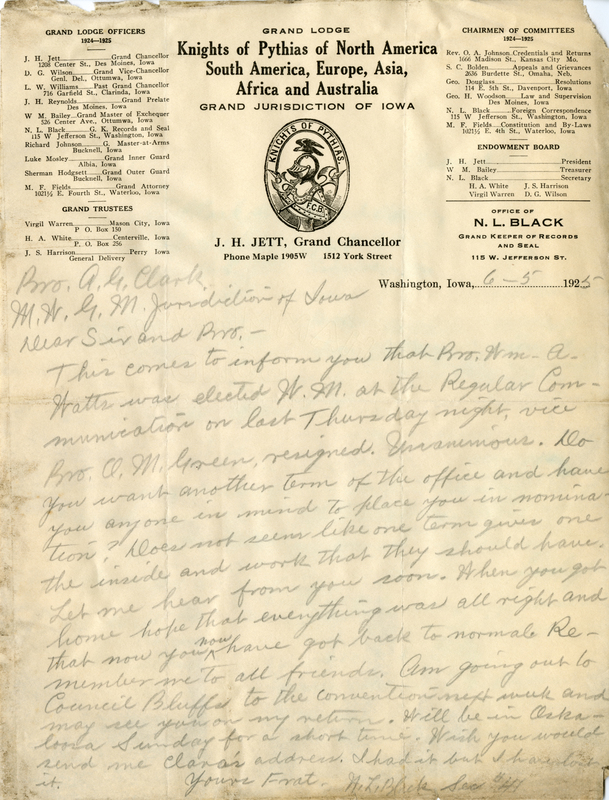 GRAND LODGE OFFICERS
1924—1925
J. H. Jett Grand Chancellor
1208 Center St., Des Moines, Iowa
D. G. Wilson Grand Vice-Chancellor
Genl. Del., Ottumwa, Iowa
L. W. Williams Past Grand Chancellor
716 Garfield St., Clarinda, Iowa
J. H. Reynolds Grand Prelate
Des Moines, Iowa
W. M. Bailey Grand Master of Exchequer
526 Center Ave., Ottumwa, Iowa
N. L. Black G. K. Records and Seal
115 W Jefferson St., Washington, Iowa
Richard Johnson G. Master-at-Arms
Bucknell, Iowa
Luke Mosley Grand Inner Guard
Albia, Iowa
Sherman Hodgsett Grand Outer Guard
Bucknell, Iowa
M. F. Fields Grand Attorney
1021½ E. Fourth St., Waterloo, Iowa
GRAND TRUSTEES
Virgil Warren Mason City, Iowa
P. O. Box 150
H. A. White Centerville, Iowa
P. O. Box 256
J. S. Harrison Perry Iowa
General Delivery
GRAND LODGE
Knights of Pythias of North America
South America, Europe, Asia,
Africa and Australia
GRAND JURISDICTION OF IOWA
KNIGHTS OF PYTHIAS.
F.C.B.
J. H. JETT, Grand Chancellor
Phone Maple 1905W 1512 York Street
CHAIRMEN OF COMMITTEES
1924—1925
Rev. O. A. Johnson Credentials and Returns
1666 Madison St., Kansas City Mo.
S. C. Bolden Appeals and Grievances
2636 Burdette St., Omaha, Neb.
Geo. Douglass Resolutions
114 E. 5th St., Davenport, Iowa
Geo. H. Woodson Law and Supervision
Des Moines, Iowa
N. L. Black Foreign Correspondence
115 W Jefferson St., Washington, Iowa
M. F. Fields Constitution and By-Laws
1021½ E. 4th St., Waterloo, Iowa
ENDOWMENT BOARD
J. H. Jett President
W. M. Bailey Treasurer
N. L. Black Secretary
H. A. White J. S. Harrison
Virgil Warren D. G. Wilson
OFFICE OF
N. L. BLACK
GRAND KEEPER OF RECORDS
AND SEAL
115 W. JEFFERSON ST.
Washington, Iowa, 6-5 1925
Bro. A. G. Clark,
M. W. G. M. Jurisdiction of Iowa
Dear Sir and Bro,-
This comes to inform you that Bro. Wm. A.
Watts was elected W. M. at the Regular Com-
munication on last Thursday night, vice
Bro. O. M. Green, resigned. Unanimious. Do
you want another term of the office and have
you anyone in mind to place you in nomina-
tion? Does not seem like one term gives one
the inside and work that they should have.
Let me hear from you soon. When you got
home hope that everything was all right and
that now you now have got back to normal. Re-
member me to all friends. Am going out to
Council Bluffs to the convention next week and
may see you on my return. Will be in Oska-
loosa Sunday for a short time. Wish you would
send me Clara's address. I had it but I have lost
it. Yours Frat. N. L. Black Sec #47